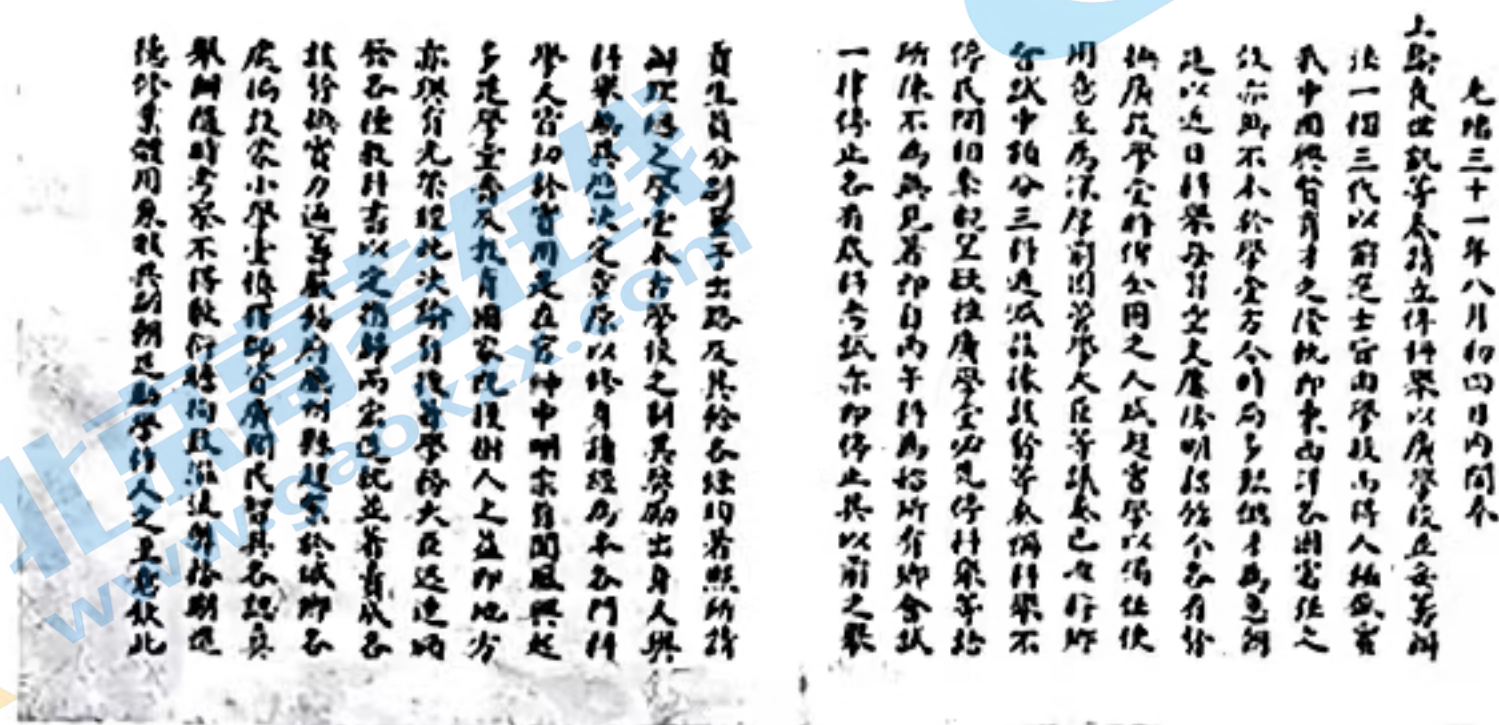 光緒三十一年八月初四日內閣奉
上諭袁世凱等奏請立停科舉以廣學校並妥籌辦
法一摺三代以前選士皆由學校而得人極盛實
我中國興賢育才之隆軌即東西洋各國富強之
效亦無不本於學堂方今時局多艱儲才為急朝
廷以近日科舉每習空文屢降明詔飭令各省督
撫廣設學堂將俾全國之人咸趨實學以備任使
用意至為深厚前因管學大臣等議奏已准將鄉
會試中額分三科遞減茲據該督等奏稱科舉不
停民間相率觀望欲推廣學堂必先停科舉等語
所陳不為無見著即自丙午科為始所有鄉會試
一律停止各省歲科考試亦即停止其以前之舉
貢生員分別量予出路及其餘各條均著照所請
辦理總之學堂本古學校之制其獎勵出身又與
科舉無異歷次定章原以修身讀經為本各門科
學又皆切於實用是在官紳申明宗旨聞風興起
多建學堂普及教育國家既獲樹人之益即地方
亦與有光榮經此次諭旨後著學務大臣迅速頒
發各種教科書以定指歸而宏造就並著責成各
該督撫實力通籌嚴飭府廳州縣趕緊於城鄉各
處遍設蒙小學堂慎選師資廣開民智其各認真
舉辦隨時考察不得敷衍瞻徇致滋流弊務期進
德修業體用兼賅共副朝廷勸學作人之至意欽此
北京高考在线
www.gaokzx.com